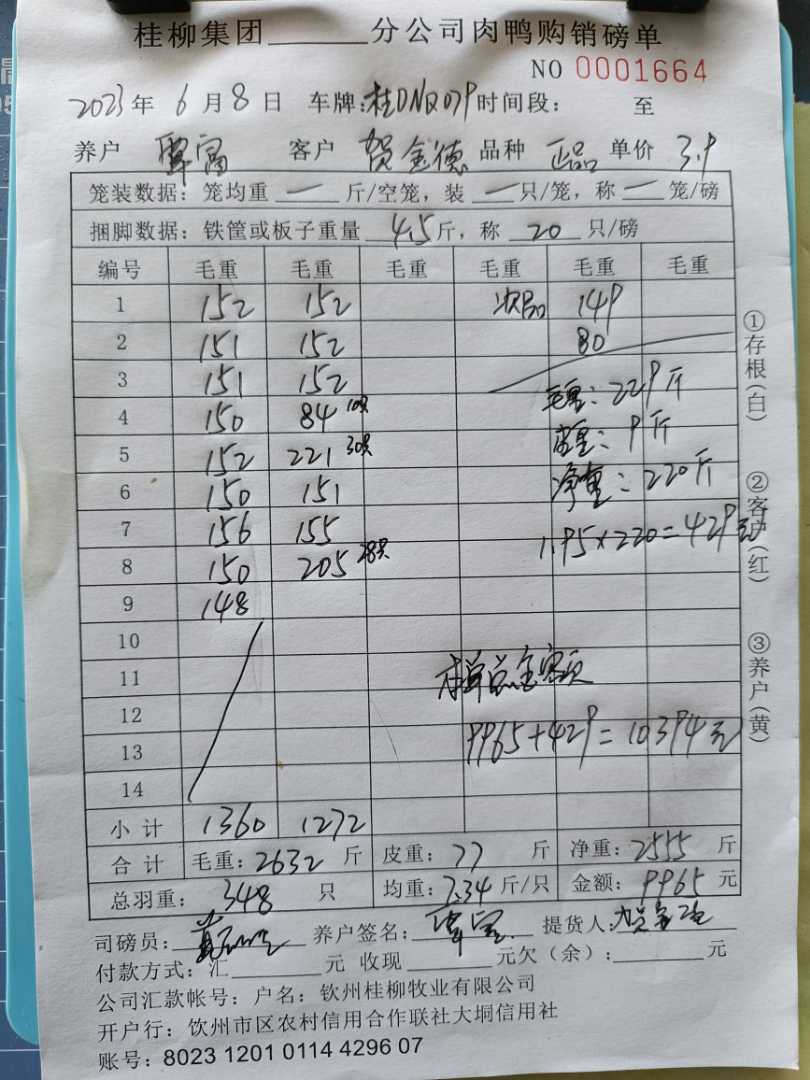 桂柳集团______分公司肉鸭购销磅单
NO 0001664
2023年 6月8日 车牌:桂DNQ079时间段: 至
养户 覃富 客户 贺金德 品种 正品 单价 3.9
笼装数据:笼均重 一 斤/空笼,装 一 只/笼,称 一 笼/磅
捆脚数据:铁筐或板子重量 4.5 斤,称 20 只/磅
编号 毛重 毛重 毛重 毛重 毛重 毛重
1 152 152 次品 149
2 151 152 80
3 151 152 毛重:229斤
4 150 84 10只
5 152 221 30只 皮重:9斤
6 150 151 净重:220斤
7 156 155 1.95×220=429元
8 150 205 28只
9 148
10
11 本单总金额
12
13 9965+429=10394元
14
小计 1360 1272
合计 毛重:2632 斤 皮重:77 斤 净重:2555 斤
总羽重: 348 只 均重:7.34 斤/只 金额: 9965 元
司磅员: 养户签名: 提货人:
付款方式:汇______元 收现______元欠(余):______元
公司汇款帐号:户名:钦州桂柳牧业有限公司
开户行:饮州市区农村信用合作联社大垌信用社
账号:8023 1201 0114 4296 07
①存根(白)
②客户(红)
③养户(黄)